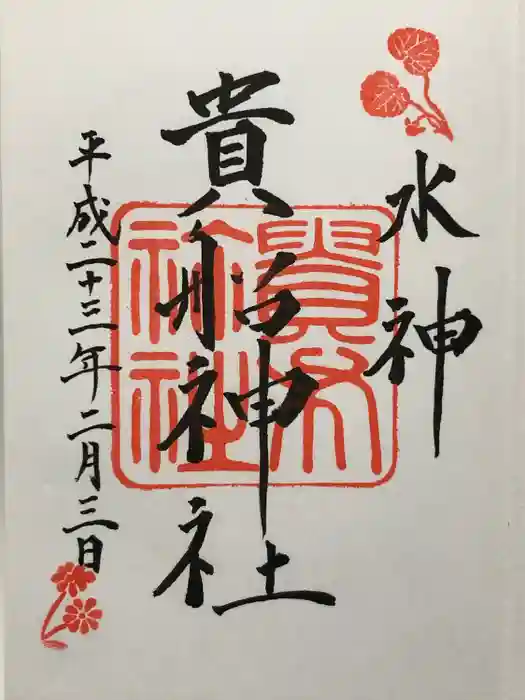 水神
貴船神社
平成二十三年二月三日